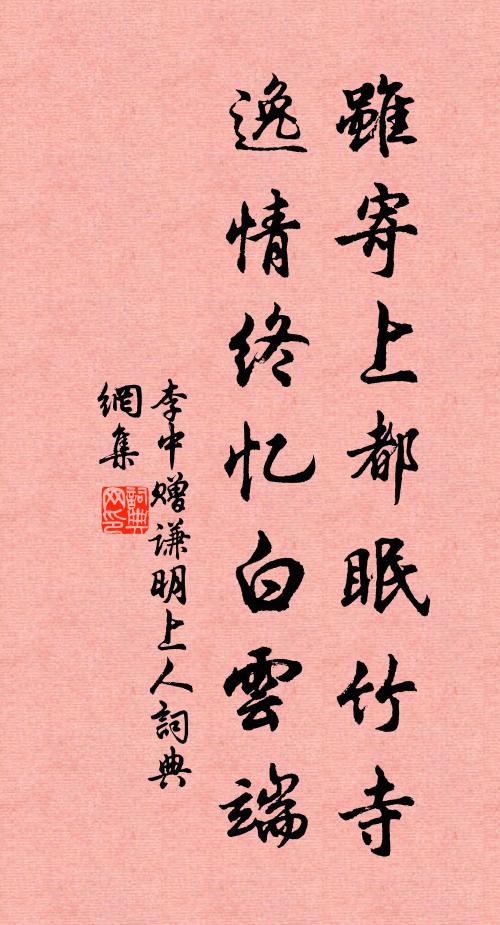 雖寄上都眠竹寺
逸情終忆白雲端
李中赠谦明上人詞典
網集
詞典网印